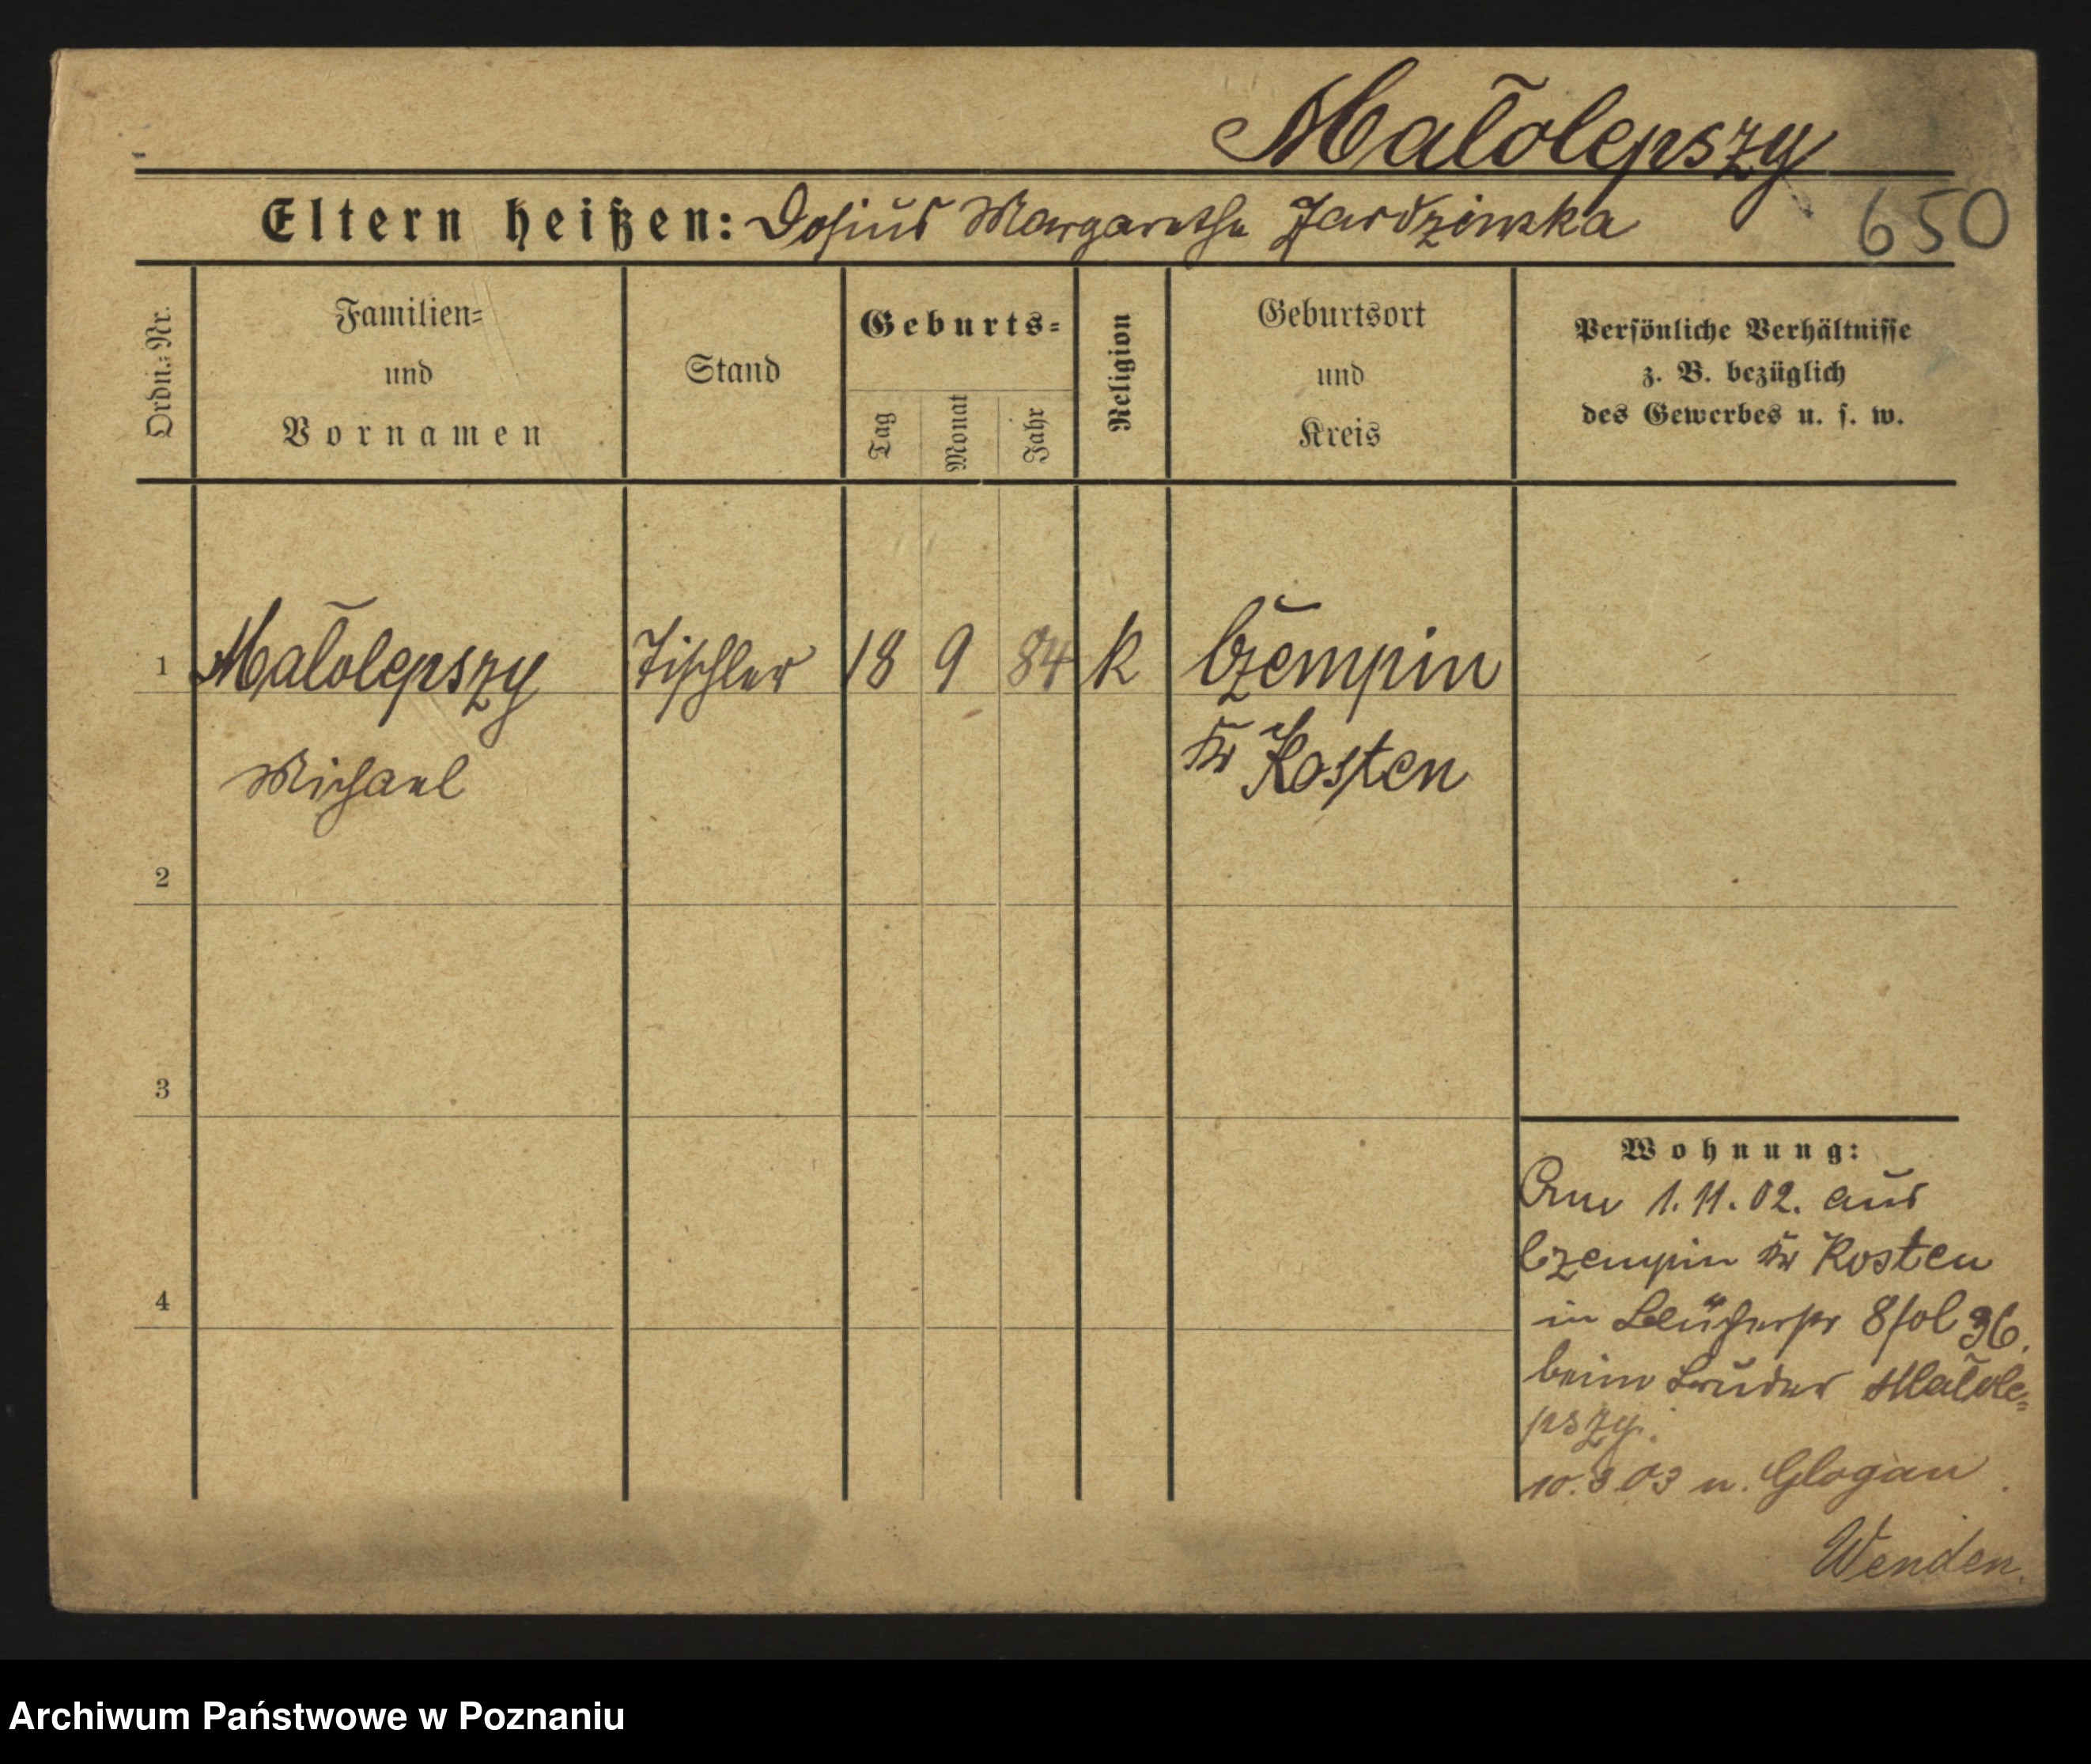 Małolepszy
Eltern heißen: Margarethe
650
Ordn.-Nr.
Familien-
und
Vornamen
Stand
Geburts-
Tag
Monat
Jahr
Religion
Geburtsort
und
Kreis
Persönliche Verhältnisse
z. B. bezüglich
des Gewerbes u. s. w.
1 Małolepszy Tischler 18 9 84 k Czempin
Michael Kr Kosten
2
3
4
Wohnung:
1.11.02. aus
Czempin Kr Kosten
in 8 36.
beim Bruder Małole-
pszy.
10.3.03 n. Glogau
Wenden.
Archiwum Państwowe w Poznaniu